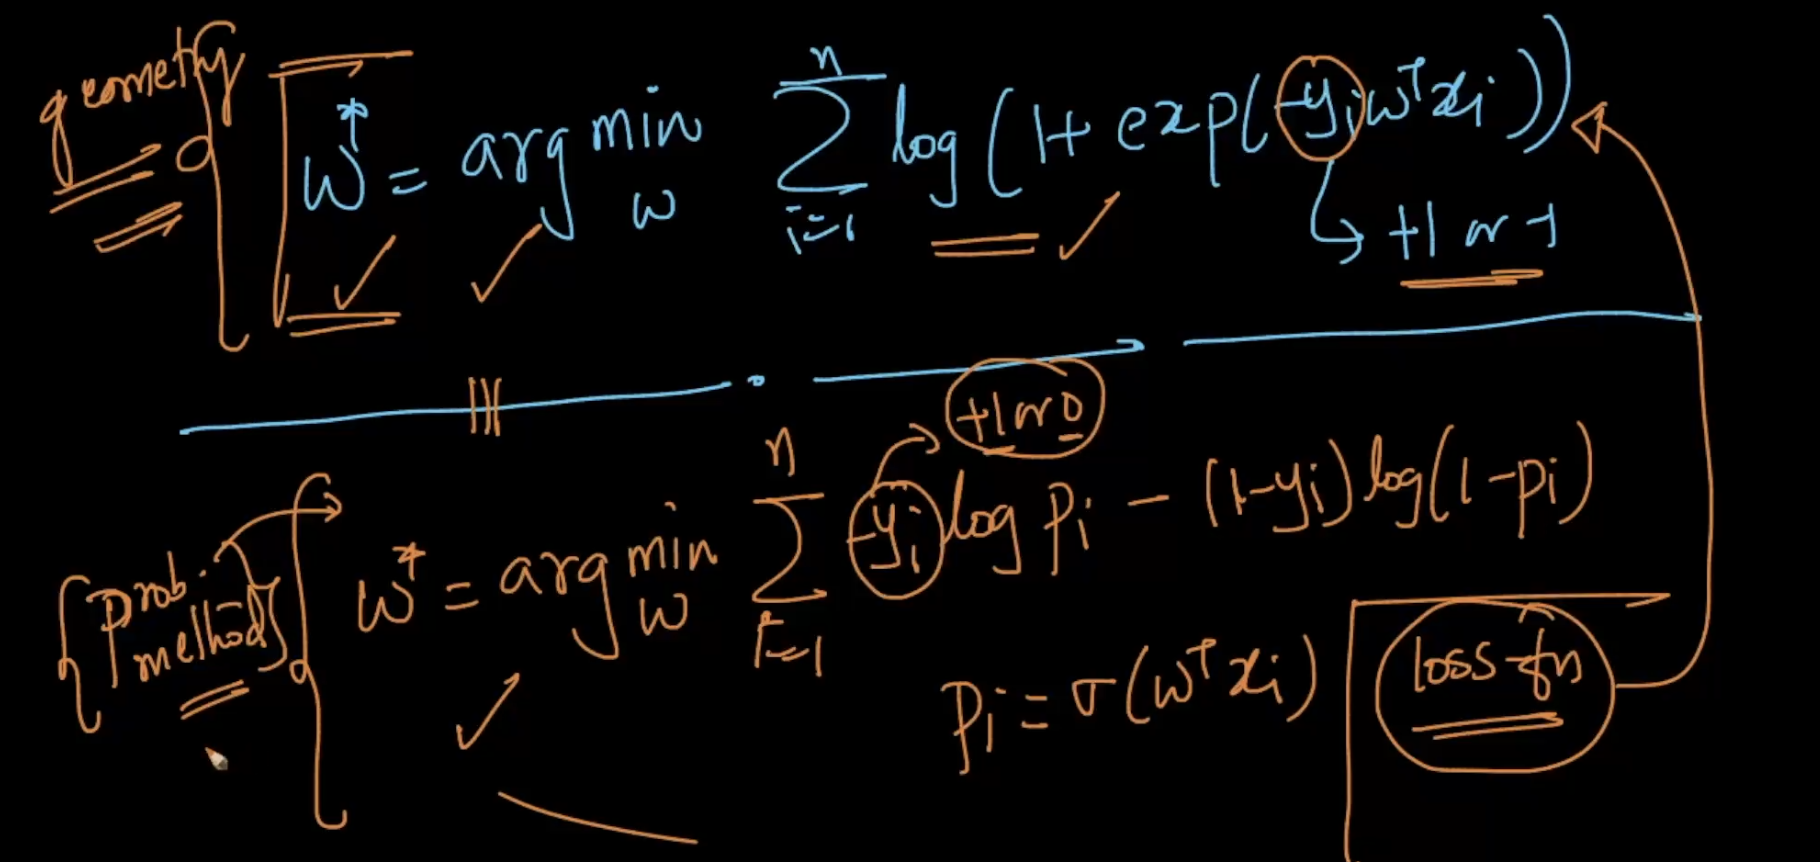 geometry
w* = arg min_w Σ_{i=1}^{n} log(1 + exp(-y_i w^T x_i))
+1 or -1
+1 or 0
Prob. method
w* = arg min_w Σ_{i=1}^{n} -y_i log p_i - (1-y_i) log(1-p_i)
p_i = σ(w^T x_i)
loss-fn